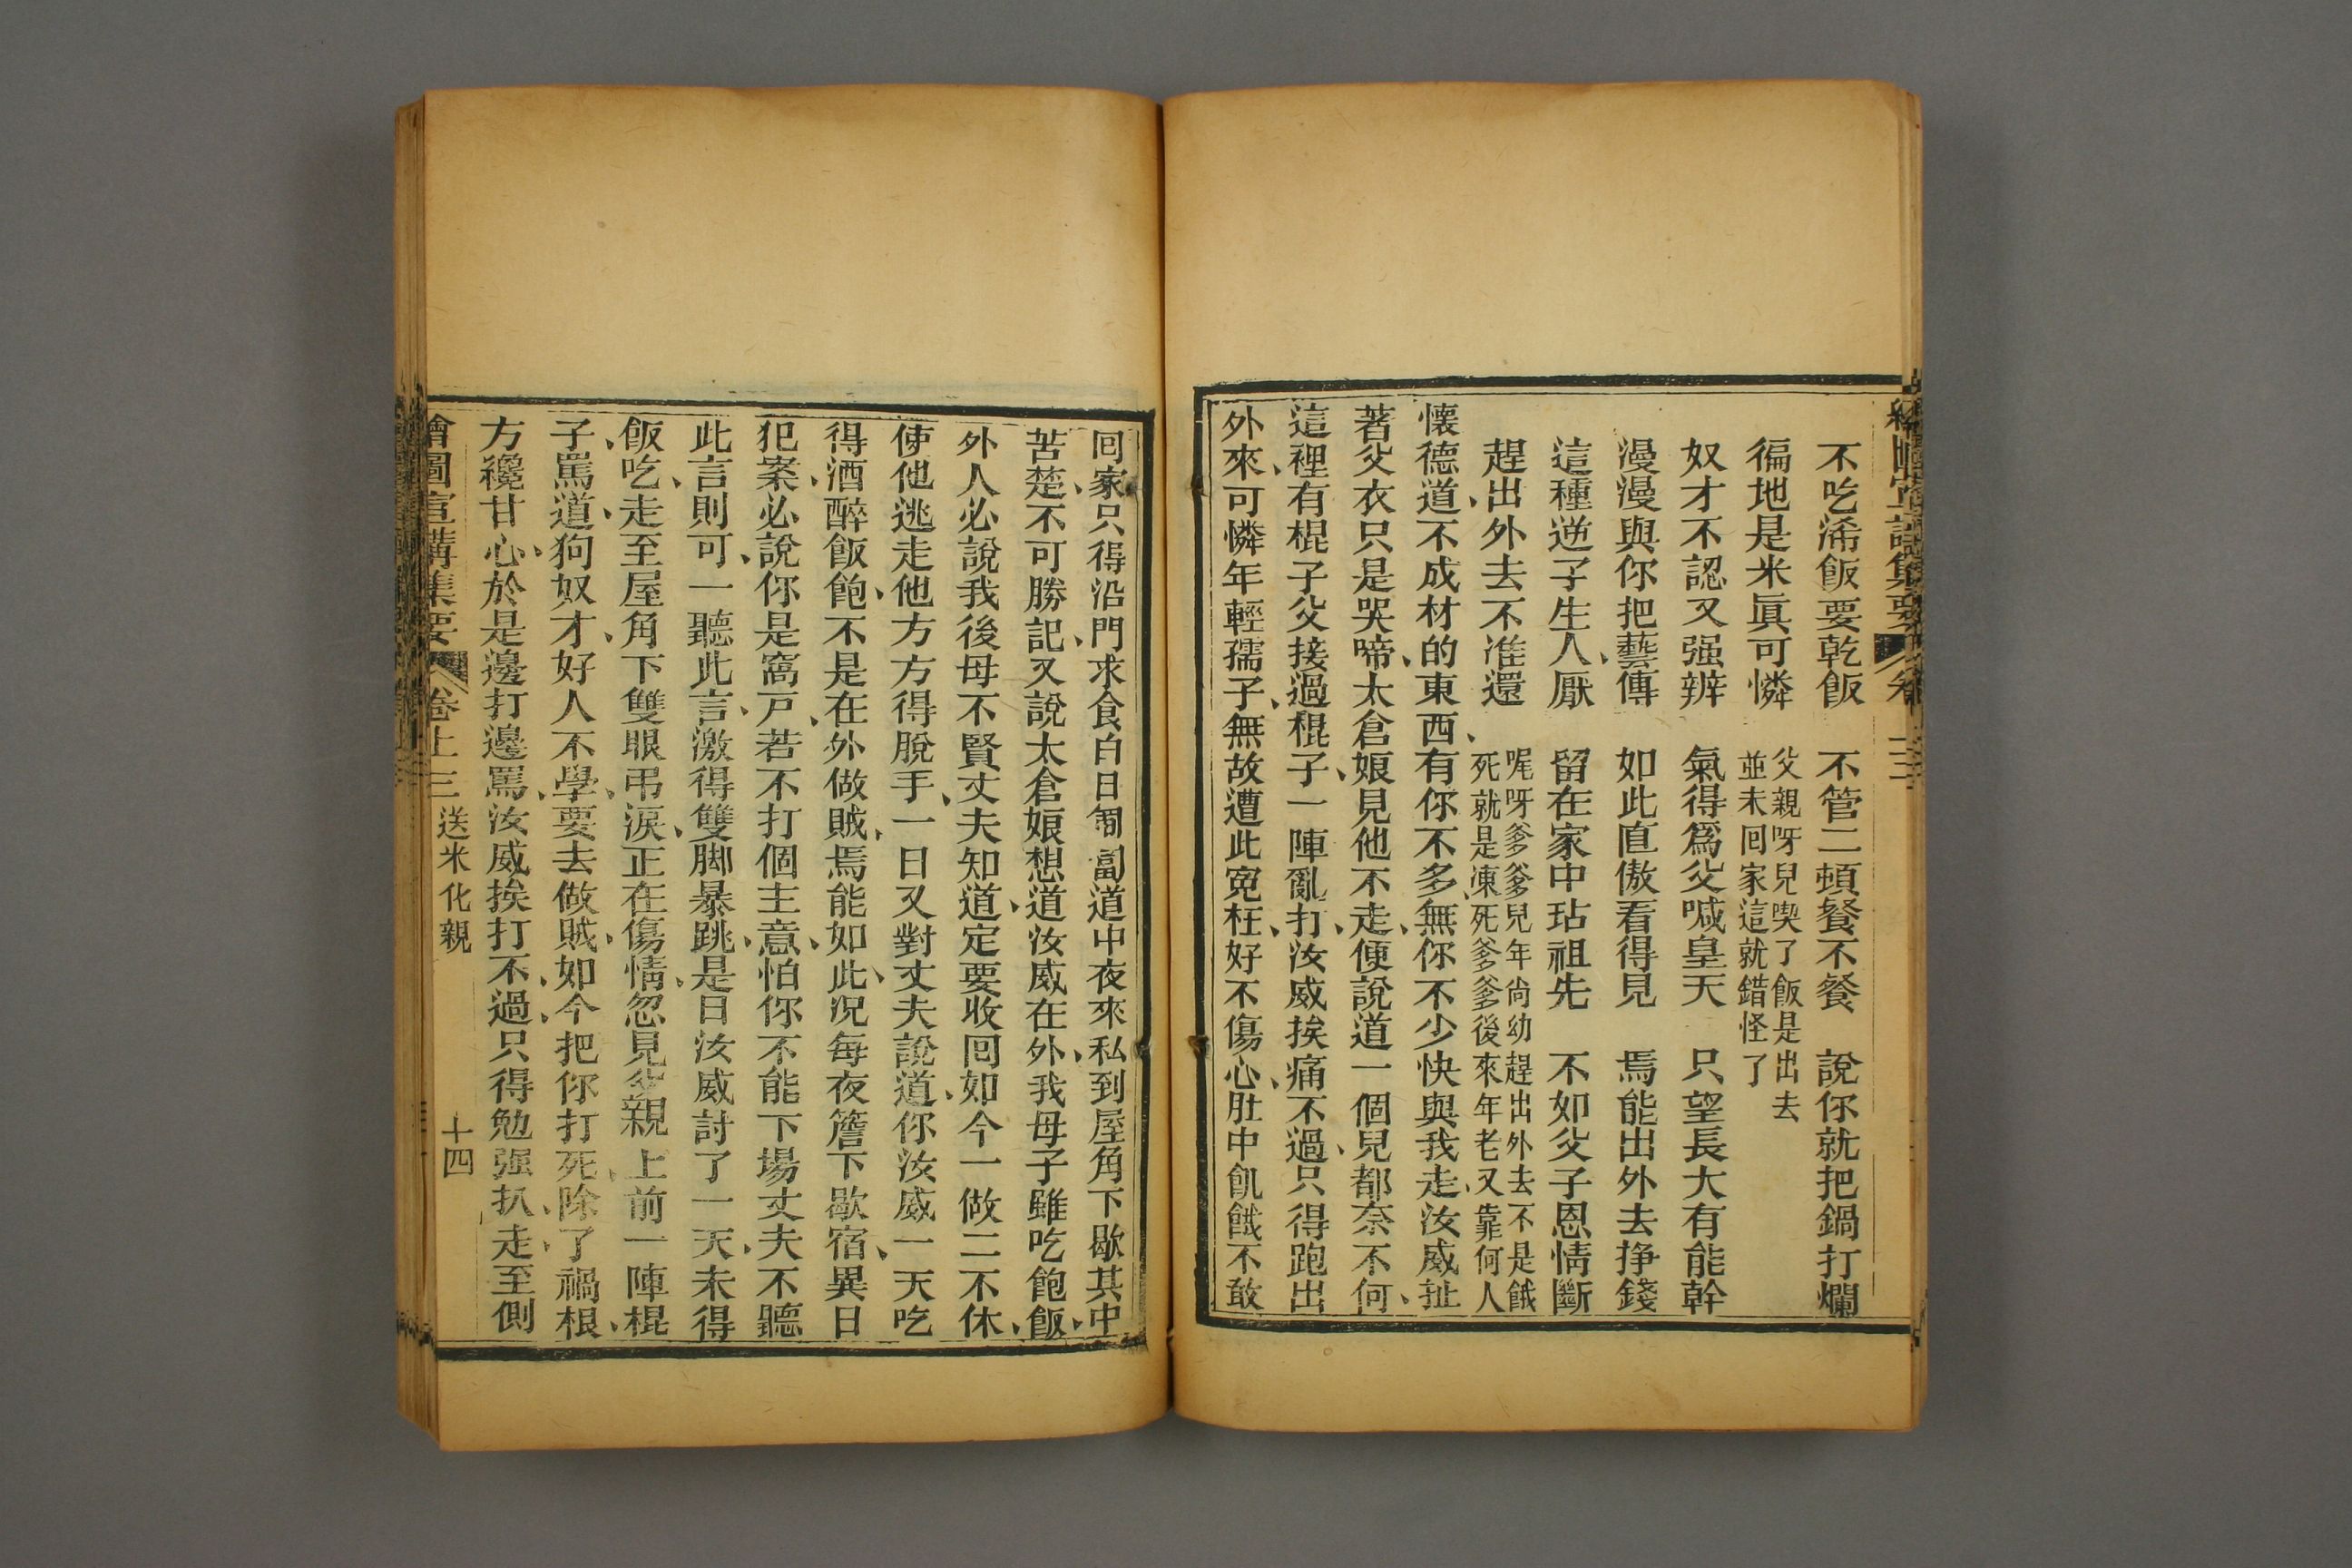 不吃浠飯要乾飯　不管二頓餐不餐　說你就把鍋打爛
徧地是米眞可憐　父親呀兒喫了飯是出去
並未回家這就錯怪了
奴才不認又强辨　氣得爲父喊皇天　只望長大有能幹
漫漫與你把藝傳　如此直傲看得見　焉能出外去挣錢
這種逆子生人厭　留在家中玷祖先　不如父子恩情斷
趕出外去不准還　呢呀爹爹兒年尙幼趕出外去不是餓
死就是凍死爹爹後來年老又靠何人
懷德道、不成材的東西、有你不多、無你不少快與我走、汝威扯
著父衣只是哭啼、太倉娘見他不走、便說道一個兒都奈不何、
這裡有棍子父接過棍子、一陣亂打、汝威挨痛不過、只得跑出
外來、可憐年輕孺子、無故遭此寃枉、好不傷心、肚中飢餓不敢
回家只得沿門求食白日道中夜來私到屋角下歇其中
苦楚、不可勝記、又說太倉娘想道汝威在外、我母子雖吃飽飯、
外人必說我後母不賢丈夫知道、定要收囘如今一做二不休、
使他逃走他方方得脫手、一日又對丈夫說道、你汝威一天吃
得酒醉飯飽、不是在外做賊、焉能如此、况每夜簷下歇宿、異日
犯案、必說你是窩戸、若不打個主意、怕你不能下塲丈夫不聽
此言則可、一聽此言、激得雙脚暴跳、是日汝威討了一天、未得
飯吃、走至屋角下雙眼弔淚、正在傷情、忽見父親上前一陣棍
子、罵道、狗奴才、好人不學、要去做賊、如今把你打死、除了禍根、
方纔甘心、於是邊打邊罵、汝威挨打不過、只得勉强扒、走至側
繪圖宣講集要　卷上三　送米化親　十四